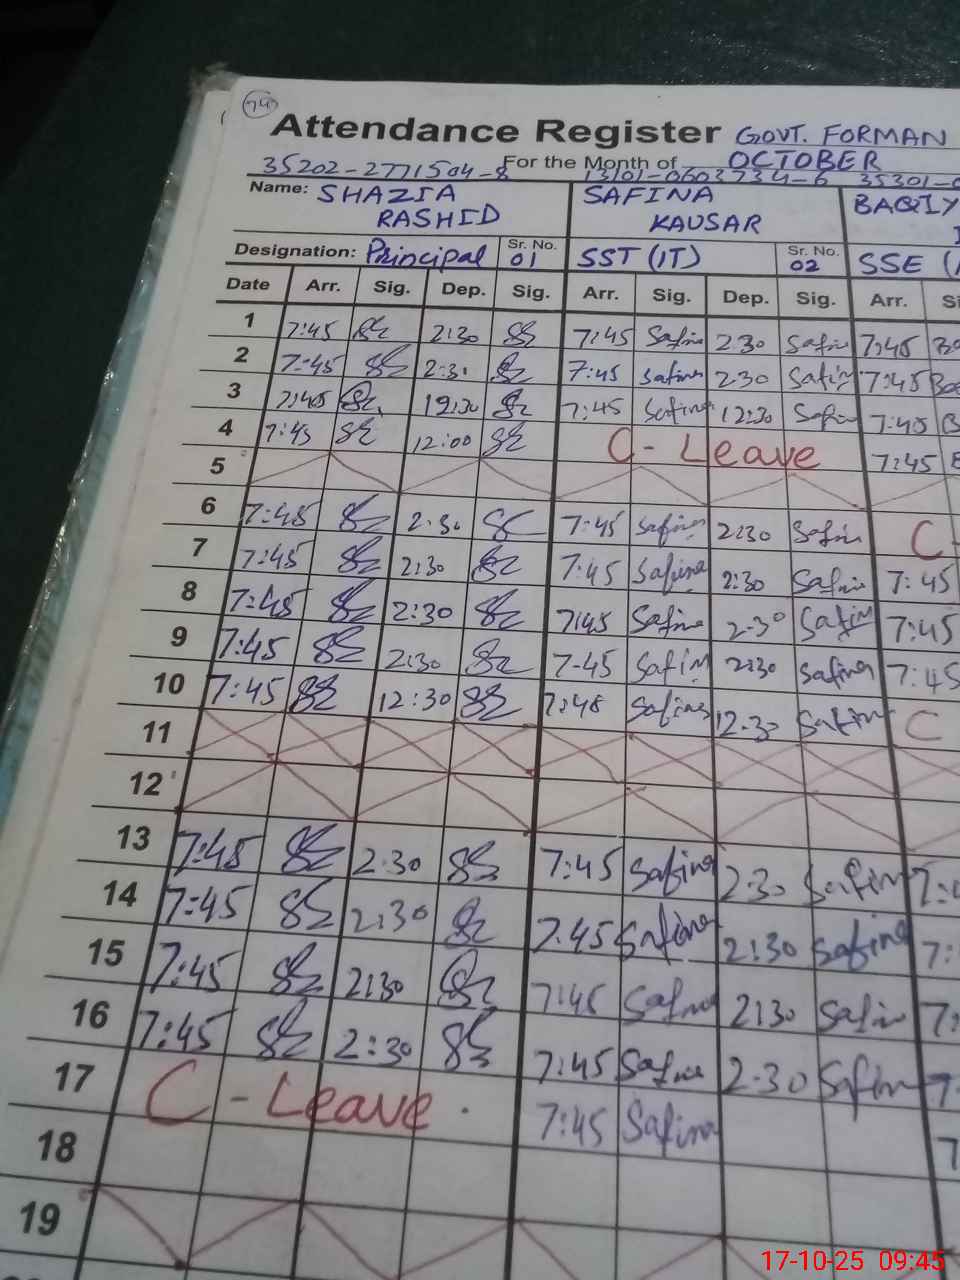 74
Attendance Register GOVT. FORMAN
For the Month of OCTOBER
35202-2771504-8 13101-0603734-6 35301-0
Name: SHAZIA RASHID SAFINA KAUSAR BAQIY
Designation: Principal Sr. No. 01 SST (IT) Sr. No. 02 SSE (
Date Arr. Sig. Dep. Sig. Arr. Sig. Dep. Sig. Arr. Si
1 7:45 2:30 7:45 Safina 2:30 Safina 7:45
2 7:45 2:30 7:45 Safina 2:30 Safina 7:45
3 7:45 12:30 7:45 Safina 12:30 Safina 7:45
4 7:45 12:00 C- Leave 7:45
5
6 7:45 2:30 7:45 Safina 2:30 Safina C-
7 7:45 2:30 7:45 Safina 2:30 Safina 7:45
8 7:45 2:30 7:45 Safina 2:30 Safina 7:45
9 7:45 2:30 7-45 Safina 2:30 Safina 7:45
10 7:45 12:30 7:45 Safina 12:30 Safina C
11
12
13 7:45 2:30 7:45 Safina 2:30 Safina
14 7:45 2:30 7:45 Safina 2:30 Safina
15 7:45 2:30 7:45 Safina 2:30 Safina
16 7:45 2:30 7:45 Safina 2:30 Safina
17 C - Leave. 7:45 Safina
18
19
17-10-25 09:45